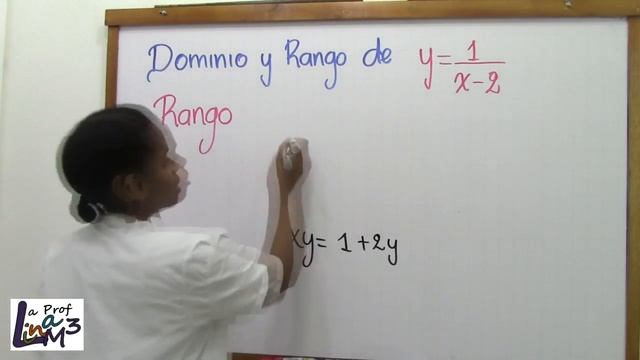 Dominio y Rango de y = 1/(x-2)
Rango
xy = 1 + 2y
La Prof
LinaM3